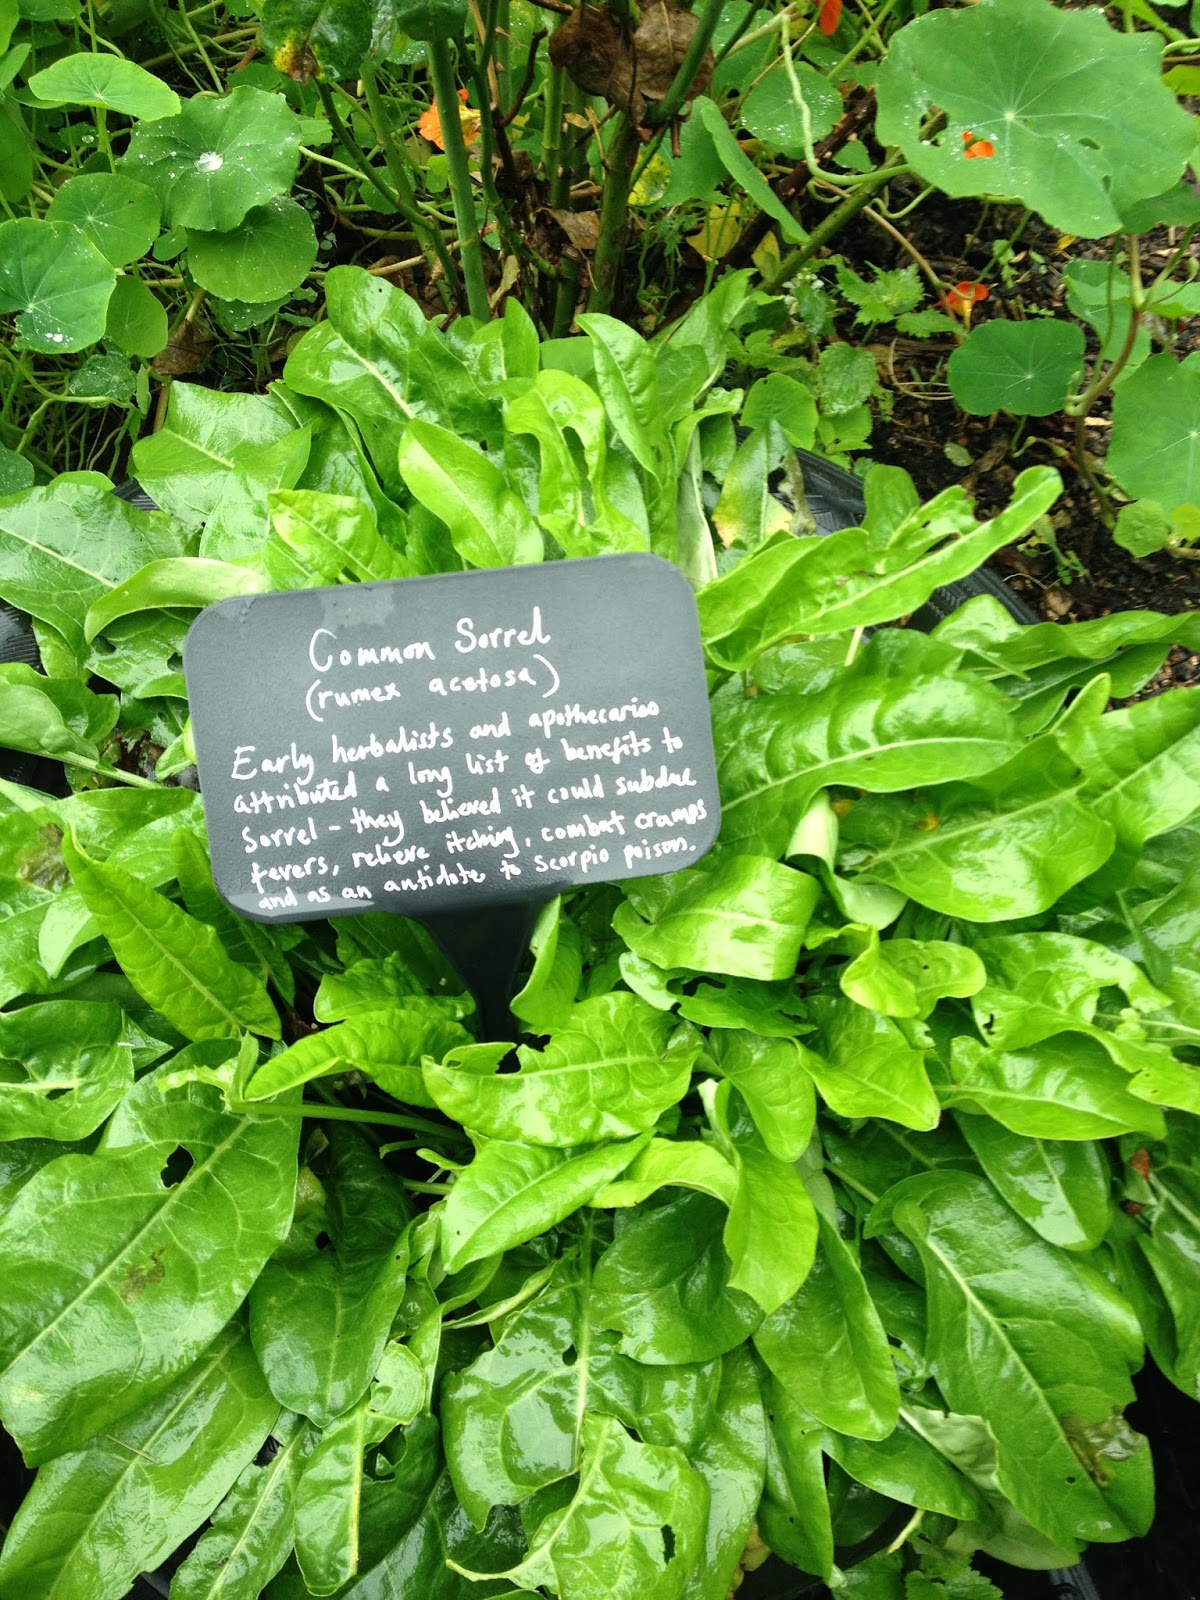 Common Sorrel
(rumex acetosa)
Early herbalists and apothecaries
attributed a long list of benefits to
Sorrel - they believed it could subdue
fevers, relieve itching, combat cramps
and as an antidote to Scorpio poison.